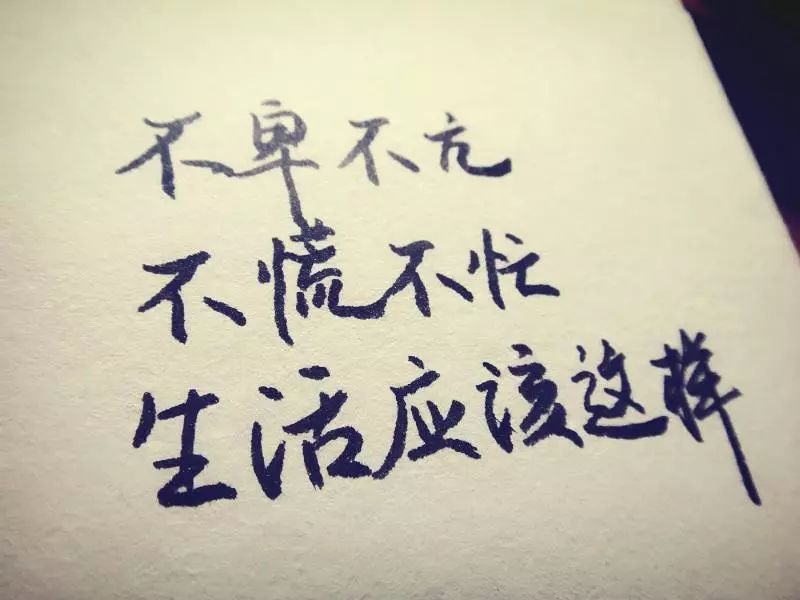 不卑不亢
不慌不忙
生活应该这样